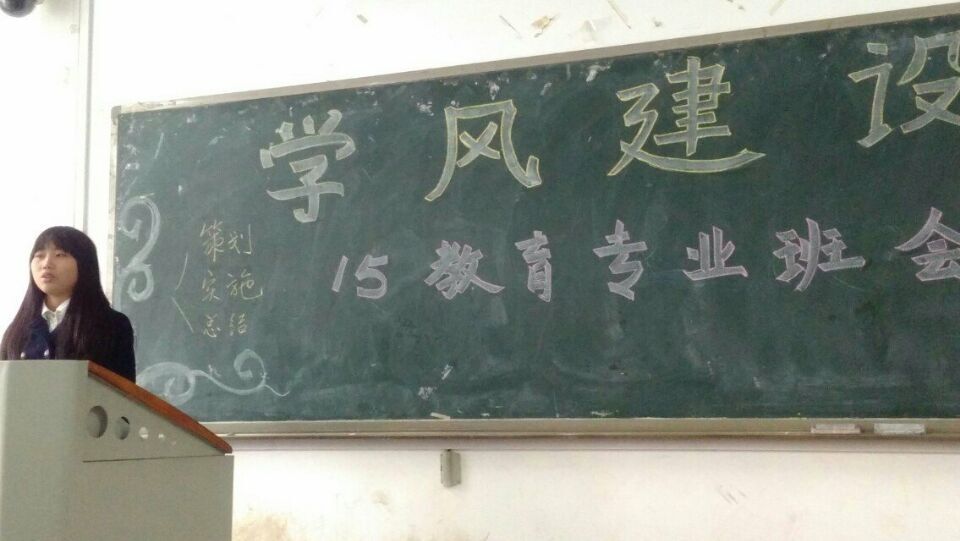 学风建设
15教育专业班会
策划
实施
总结